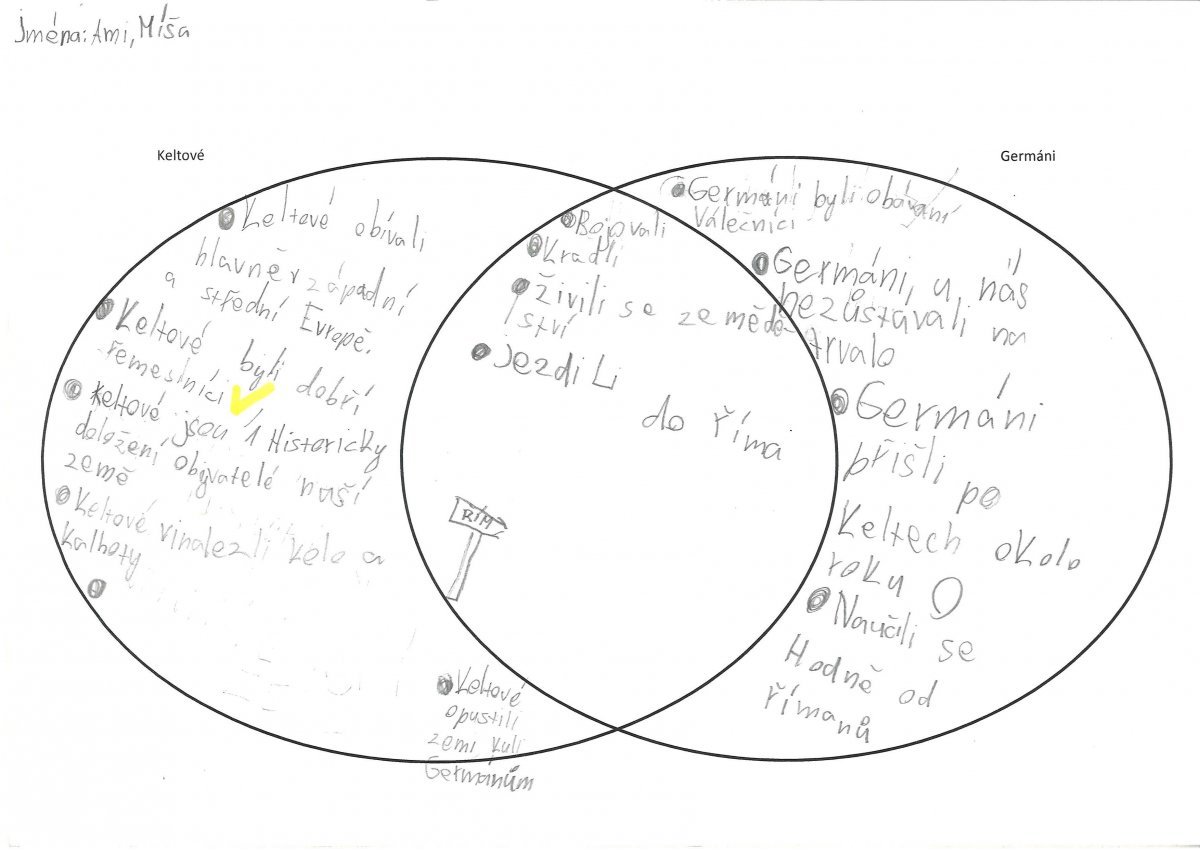 Jména: Ami, Míša
Keltové
Germáni
Keltové obívali
hlavně v západní
a střední Evropě.
Keltové byli dobří
řemeslníci
Keltové jsou 1 Historicky
doložení obyvatelé naší
země
Keltové vinalezli kolo a
kalhoty
Keltové
opustili
zemi kuli
Germánům
Bojovali
Kradli
živili se zeměděl-
ství
jezdili
do říma
ŘÍM
Germáni byli obávaní
Válečníci
Germáni, u nás
nezůstávali na
trvalo
Germáni
přišli
po
Keltech okolo
roku 0
Naučili se
Hodně od
římanů